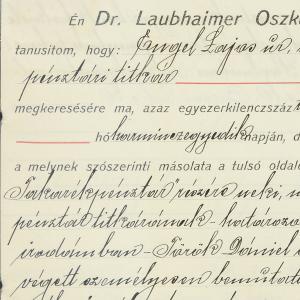 Én Dr. Laubhaimer Oszká
tanusitom, hogy: Engel Lajos úr,
pénztári titkár
megkeresésére ma, azaz egyezerkilenczszáz
hó harminczegyedik napján, d
a melynek szószerinti másolata a tulsó oldalo
Takarékpénztár részv neki,
pénztár titkárának - határozo
irodámban - Török Dániel
végett személyesen bemutat